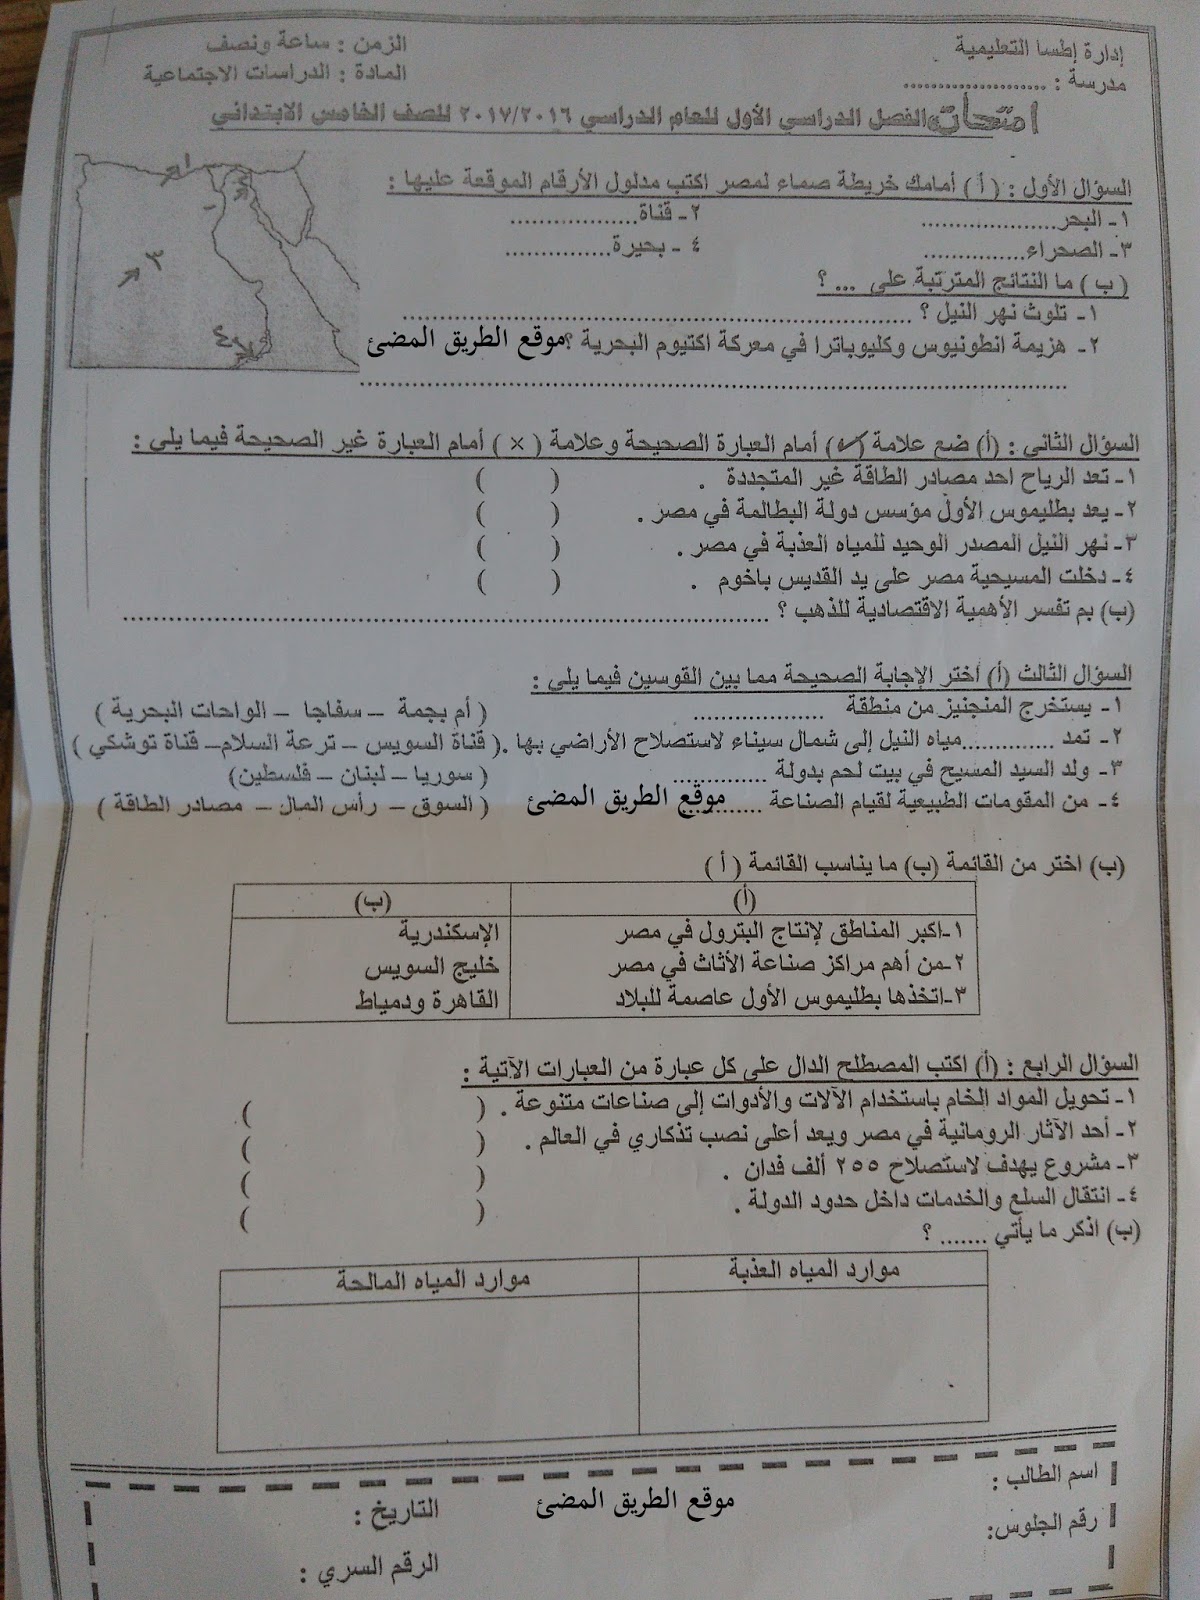 إدارة إطسا التعليمية
الزمن : ساعة ونصف
مدرسة : ......................
المادة : الدراسات الاجتماعية
امتحان الفصل الدراسي الأول للعام الدراسي ٢٠١٧/٢٠١٦ للصف الخامس الابتدائي
السؤال الأول : ( أ ) أمامك خريطة صماء لمصر اكتب مدلول الأرقام الموقعة عليها :
١- البحر................... ٢- قناة.................
٣- الصحراء............... ٤ - بحيرة...............
١
٢
٣
٤
( ب ) ما النتائج المترتبة على ... ؟
١- تلوث نهر النيل ؟ ................................................................
٢- هزيمة انطونيوس وكليوباترا في معركة اكتيوم البحرية ؟ موقع الطريق المضئ
................................................................................
السؤال الثانى : (أ) ضع علامة (✓) أمام العبارة الصحيحة وعلامة ( × ) أمام العبارة غير الصحيحة فيما يلى :
١- تعد الرياح احد مصادر الطاقة غير المتجددة . ( )
٢- يعد بطليموس الأول مؤسس دولة البطالمة في مصر . ( )
٣- نهر النيل المصدر الوحيد للمياه العذبة في مصر . ( )
٤- دخلت المسيحية مصر على يد القديس باخوم . ( )
(ب) بم تفسر الأهمية الاقتصادية للذهب ؟ ................................................................
السؤال الثالث (أ) اختر الإجابة الصحيحة مما بين القوسين فيما يلى :
١- يستخرج المنجنيز من منطقة ................. ( أم بجمة – سفاجا – الواحات البحرية )
٢- تمد .............مياه النيل إلى شمال سيناء لاستصلاح الأراضي بها .( قناة السويس – ترعة السلام– قناة توشكي )
٣- ولد السيد المسيح في بيت لحم بدولة ............. ( سوريا – لبنان – فلسطين)
٤- من المقومات الطبيعية لقيام الصناعة ........... موقع الطريق المضئ ( السوق – رأس المال – مصادر الطاقة )
(ب) اختر من القائمة (ب) ما يناسب القائمة ( أ )
(أ) (ب)
١-اكبر المناطق لإنتاج البترول في مصر الإسكندرية
٢-من أهم مراكز صناعة الأثاث في مصر خليج السويس
٣-اتخذها بطليموس الأول عاصمة للبلاد القاهرة ودمياط
السؤال الرابع : (أ) اكتب المصطلح الدال على كل عبارة من العبارات الآتية :
١- تحويل المواد الخام باستخدام الآلات والأدوات إلى صناعات متنوعة . ( )
٢- أحد الآثار الرومانية في مصر ويعد أعلى نصب تذكاري في العالم . ( )
٣- مشروع يهدف لاستصلاح ٢٥٥ ألف فدان . ( )
٤- انتقال السلع والخدمات داخل حدود الدولة . ( )
(ب) اذكر ما يأتي ....... ؟
موارد المياه العذبة موارد المياه المالحة
اسم الطالب :
موقع الطريق المضئ
التاريخ :
رقم الجلوس:
الرقم السري :